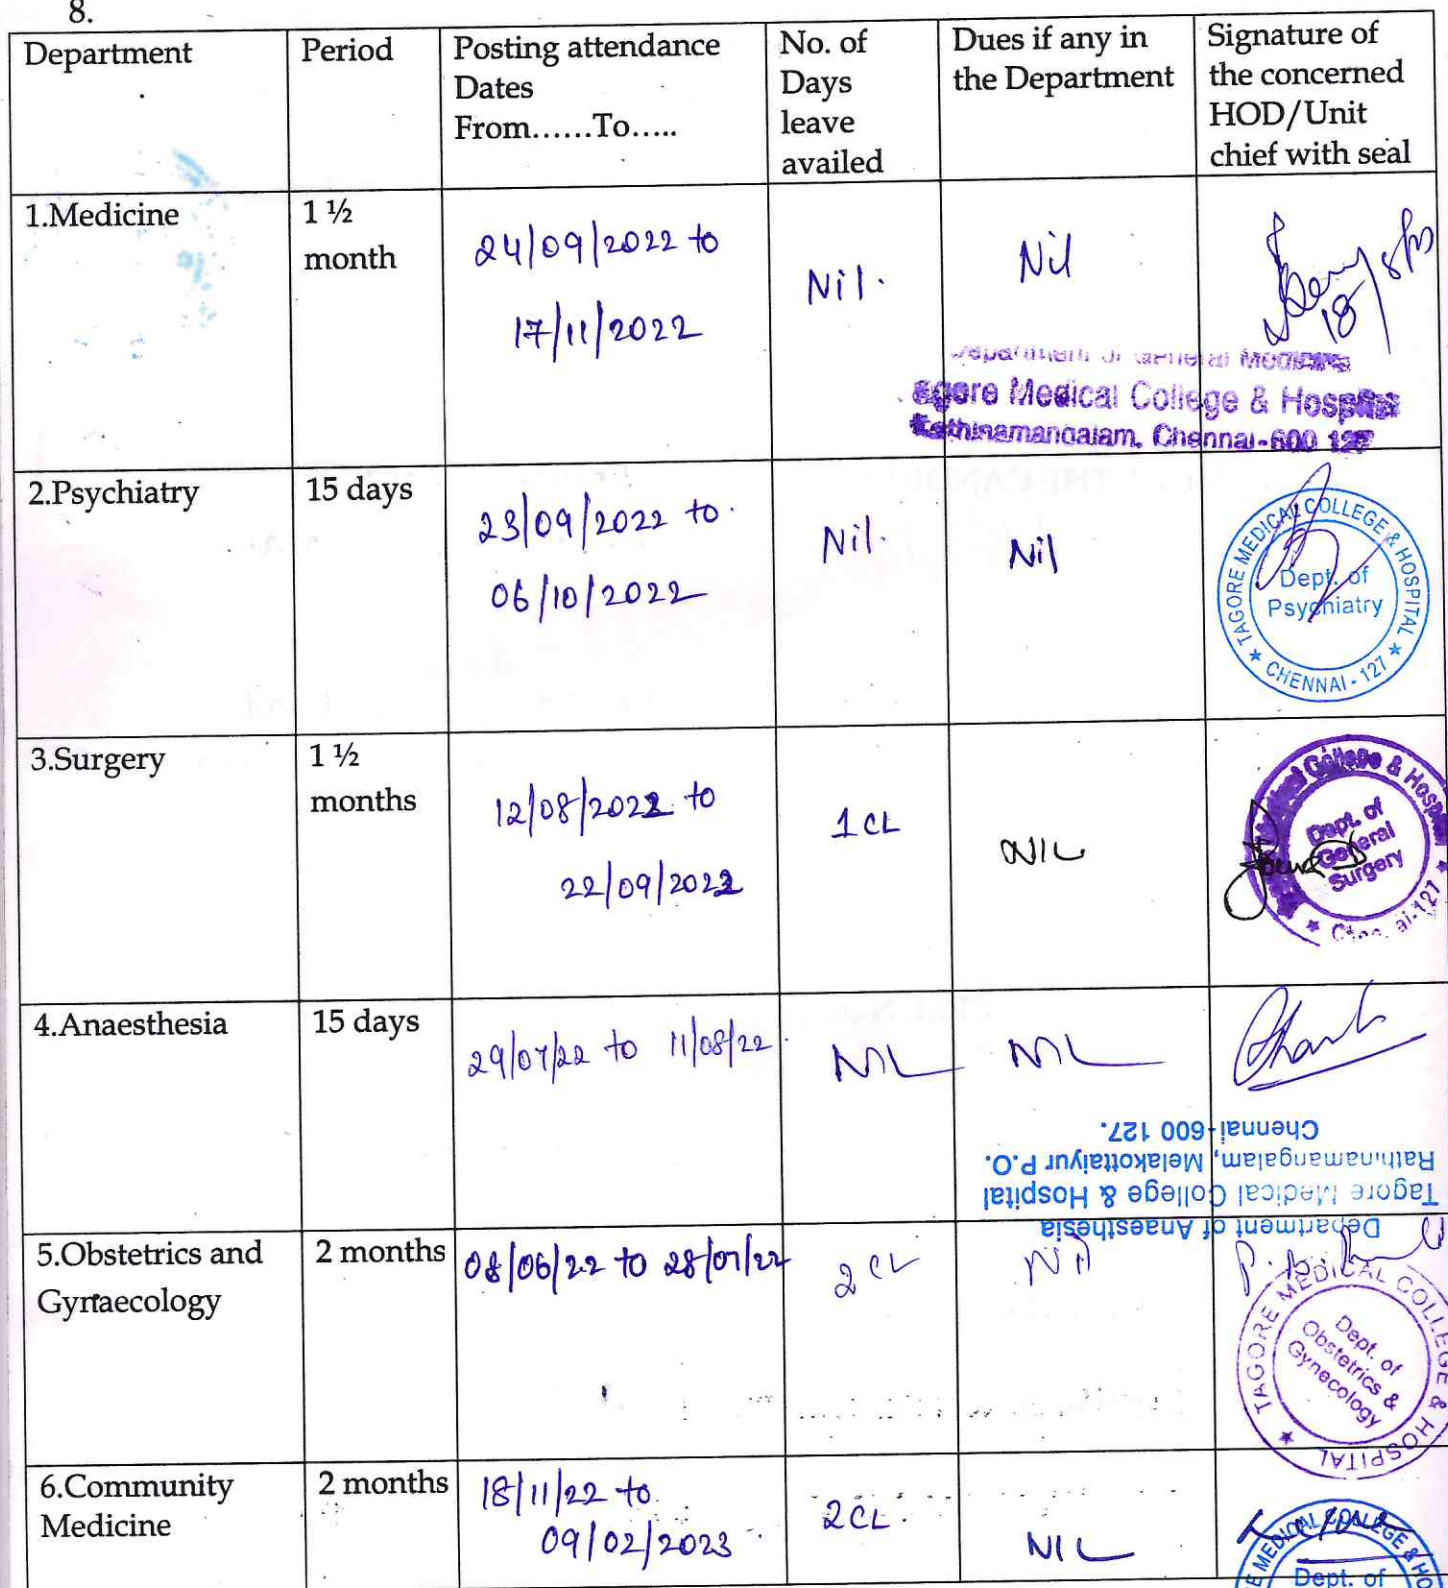 8.
Department
Period
Posting attendance
Dates
From......To.....
No. of
Days
leave
availed
Dues if any in
the Department
Signature of
the concerned
HOD/Unit
chief with seal
1.Medicine
1 ½
month
24/09/2022 to
17/11/2022
Nil.
Nil
18
Department of General Medicine
agore Medical College & Hospital
Rathinamangalam, Chennai-600 127
2.Psychiatry
15 days
23/09/2022 to
06/10/2022
Nil.
Nil
TAGORE MEDICAL COLLEGE & HOSPITAL
Dept. of
Psychiatry
★ CHENNAI - 127 ★
3.Surgery
1 ½
months
12/08/2022 to
22/09/2022
1 CL
NIL
Medical College & Hospital
Dept. of
General
Surgery
4.Anaesthesia
15 days
29/07/22 to 11/08/22
NIL
NIL
Department of Anaesthesia
Tagore Medical College & Hospital
Rathinamangalam, Melakottaiyur P.O.
Chennai-600 127.
5.Obstetrics and
Gynaecology
2 months
08/06/22 to 28/07/22
2 CL
Nil
TAGORE MEDICAL COLLEGE & HOSPITAL ★
Dept. of
Obstetrics &
Gynecology
6.Community
Medicine
2 months
18/11/22 to
09/02/2023
2 CL
NIL
MEDICAL COLLEGE & HO
Dept. of